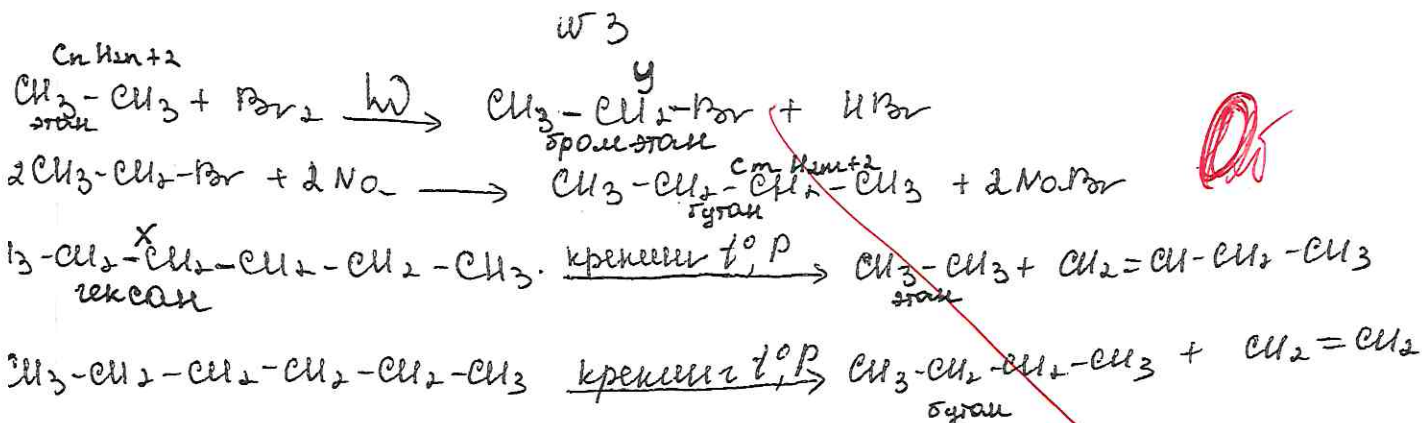 № 3
CnH2n+2 y
CH3-CH3 + Br2 hν → CH3-CH2-Br + HBr
этан бромэтан
0б
CmH2m+2
2CH3-CH2-Br + 2Na → CH3-CH2-CH2-CH3 + 2NaBr
бутан
X
H3-CH2-CH2-CH2-CH2-CH3. крекинг t°, P → CH3-CH3 + CH2=CH-CH2-CH3
гексан этан
CH3-CH2-CH2-CH2-CH2-CH3 крекинг t°, P → CH3-CH2-CH2-CH3 + CH2=CH2
бутан